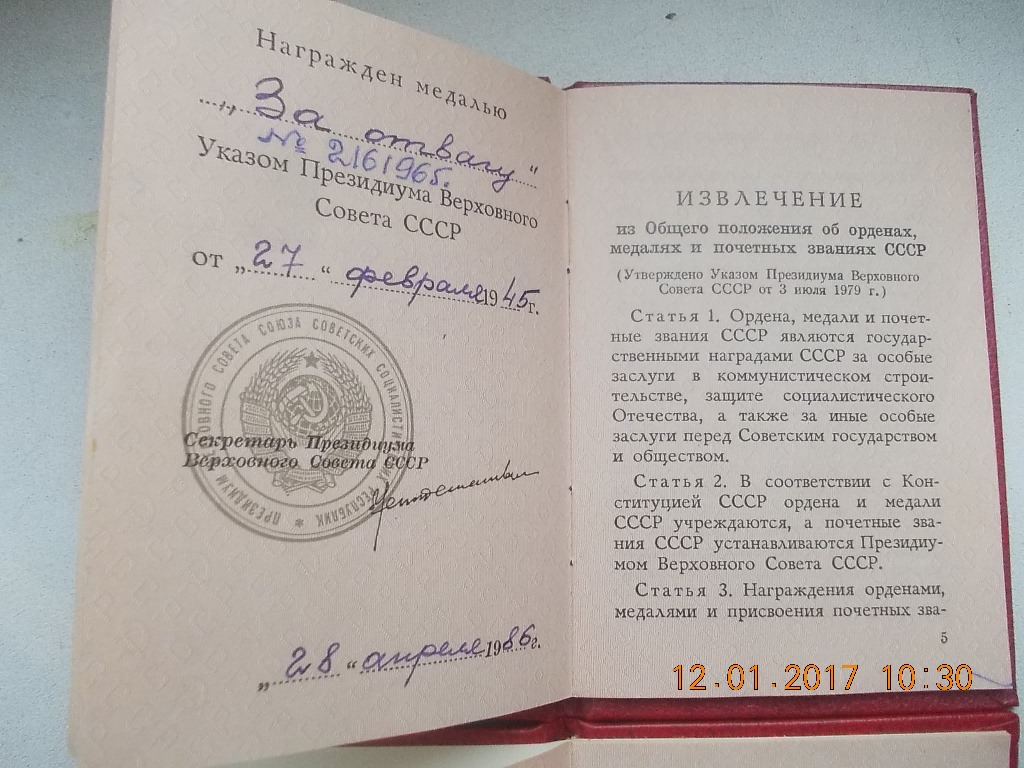 Награжден медалью
„За отвагу“
№ 2161965.
Указом Президиума Верховного
Совета СССР
от „27“ февраля 1945 г.
ПРЕЗИДИУМ ВЕРХОВНОГО СОВЕТА СОЮЗА СОВЕТСКИХ СОЦИАЛИСТИЧЕСКИХ РЕСПУБЛИК
Секретарь Президиума
Верховного Совета СССР
„28“ апреля 1986 г.
ИЗВЛЕЧЕНИЕ
из Общего положения об орденах,
медалях и почетных званиях СССР
(Утверждено Указом Президиума Верховного
Совета СССР от 3 июля 1979 г.)
Статья 1. Ордена, медали и почет-
ные звания СССР являются государ-
ственными наградами СССР за особые
заслуги в коммунистическом строи-
тельстве, защите социалистического
Отечества, а также за иные особые
заслуги перед Советским государством
и обществом.
Статья 2. В соответствии с Кон-
ституцией СССР ордена и медали
СССР учреждаются, а почетные зва-
ния СССР устанавливаются Президиу-
мом Верховного Совета СССР.
Статья 3. Награждения орденами,
медалями и присвоения почетных зва-
5
12.01.2017 10:30